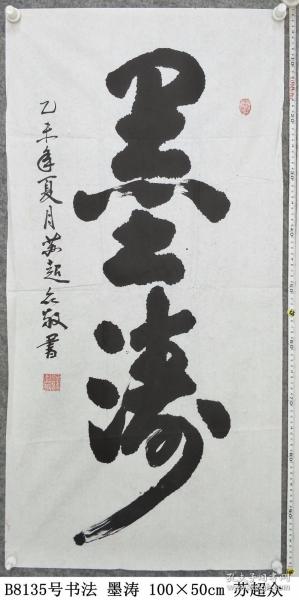 墨涛
乙未年夏月苏超众敬书
B8135号书法 墨涛 100×50cm 苏超众